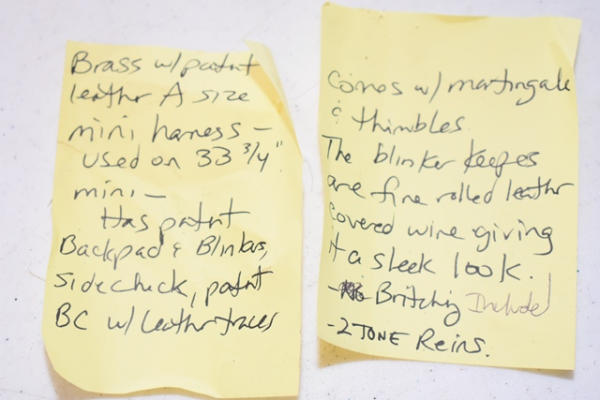 Brass w/patnt
leathr A size
mini harness -
used on 33 3/4"
mini -
Has patnt
Backpad & Blinkrs,
sidecheck, patnt
BC w/leathr traces
Comes w/ martingale
& thimbles.
The blinker keepes
are fine rolled leathr
covered wire giving
it a sleek look.
- Britching Included
- 2 TONE Reins.